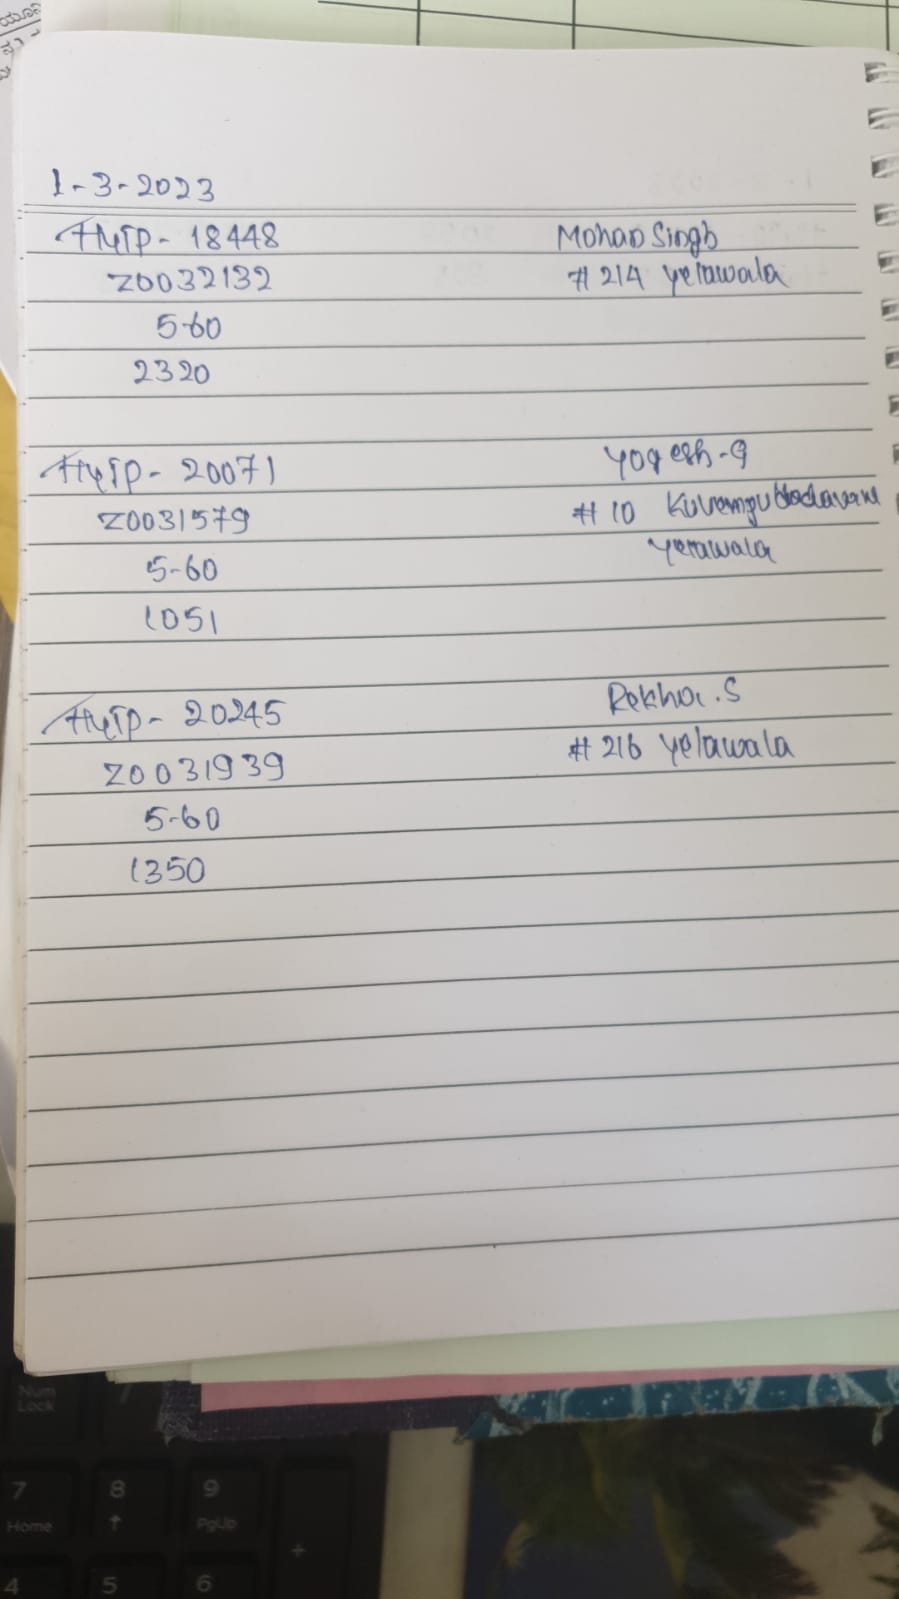 1-3-2023
HyTP- 18448 Mohan Singh
Z0032132 # 214 yelawala
5-60
2320
HyTP- 20071 Yogesh-G
Z0031579 # 10
5-60 Yerawala
1051
HyTP- 20245 Rekha.S
Z0031939 # 216 yelawala
5-60
1350
Num
Lock
7 8 9
Home ↑ PgUp
+
4 5 6